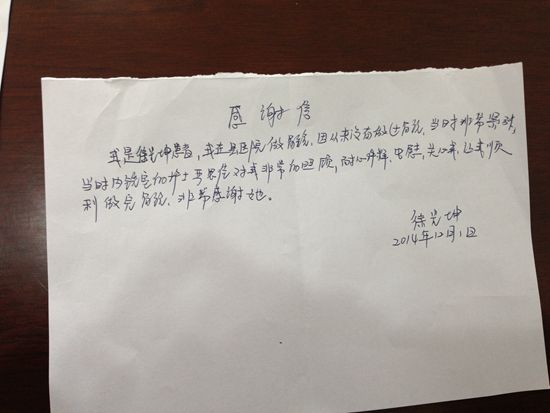 感谢信
我是徐光坤患者，我在县医院做胃镜，因从来没有做过胃镜，当时非常紧张，
当时内镜室的护士 对我非常的照顾，耐心 ，安慰，关心我，让我顺
利做完胃镜，非常感谢她。
徐光坤
2014年12月1日